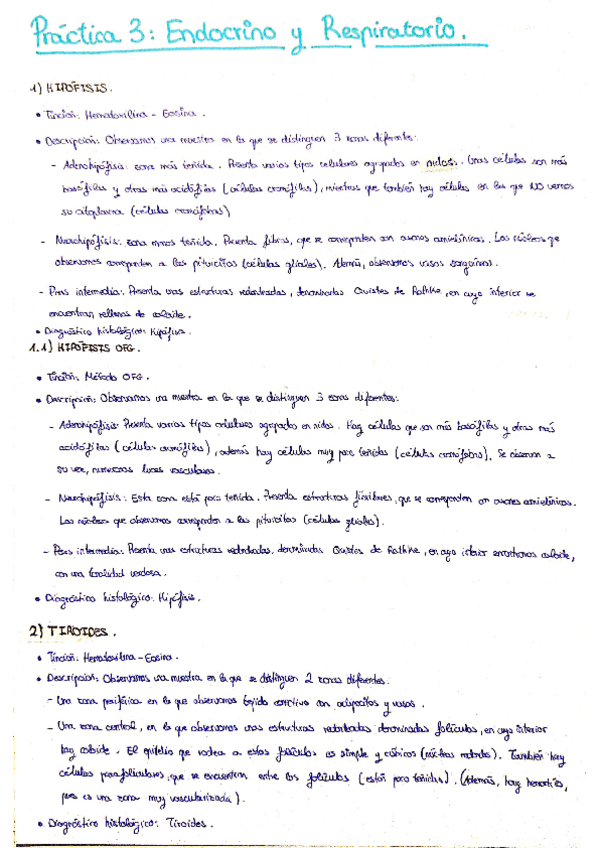 Práctica 3: Endocrino y Respiratorio.
1) HIPÓFISIS.
• Tinción: Hematoxilina - Eosina.
• Descripción: Observamos una muestra en la que se distinguen 3 zonas diferentes:
- Adenohipófisis: zona más teñida. Presenta varios tipos celulares agrupados en nidos. Unas células son más
basófilas y otras más acidófilas (células cromófilas), mientras que también hay células en las que NO vemos
su citoplasma (células cromófobas)
- Neurohipófisis: zona menos teñida. Presenta fibras, que se corresponden con axones amielínicos. Los núcleos que
observamos corresponden a los pituicitos (células gliales). Además, observamos vasos sanguíneos.
- Pars intermedia: Presenta unas estructuras redondeadas, denominadas Quistes de Rathke, en cuyo interior se
encuentran rellenos de coloide.
• Diagnóstico histológico: Hipófisis.
1.1) HIPÓFISIS OFG.
• Tinción: Método OFG.
• Descripción: Observamos una muestra en la que se distinguen 3 zonas diferentes:
- Adenohipófisis: Presenta varios tipos celulares agrupados en nidos. Hay células que son más basófilas y otras más
acidófilas (células cromófilas), además hay células muy poco teñidas (células cromófobas). Se observan a
su vez, numerosas luces vasculares.
- Neurohipófisis: Esta zona está poco teñida. Presenta estructuras fibrilares, que se corresponden con axones amielínicos.
Los núcleos que observamos corresponden a los pituicitos (células gliales).
- Pars intermedia: Presenta unas estructuras redondeadas, denominadas Quistes de Rathke, en cuyo interior encontramos coloide,
con una tonalidad verdosa.
• Diagnóstico histológico: Hipófisis.
2) TIROIDES.
• Tinción: Hematoxilina - Eosina.
• Descripción: Observamos una muestra en la que se distinguen 2 zonas diferentes:
- Una zona periférica en la que observamos tejido conectivo con adipocitos y vasos.
- Una zona central, en la que observamos unas estructuras redondeadas denominadas folículos, en cuyo interior
hay coloide. El epitelio que rodea a estos folículos es simple y cúbico (núcleos redondos). También hay
células parafoliculares, que se encuentran entre los folículos (están poco teñidas). (Además, hay hematíes,
pues es una zona muy vascularizada).
• Diagnóstico histológico: Tiroides.